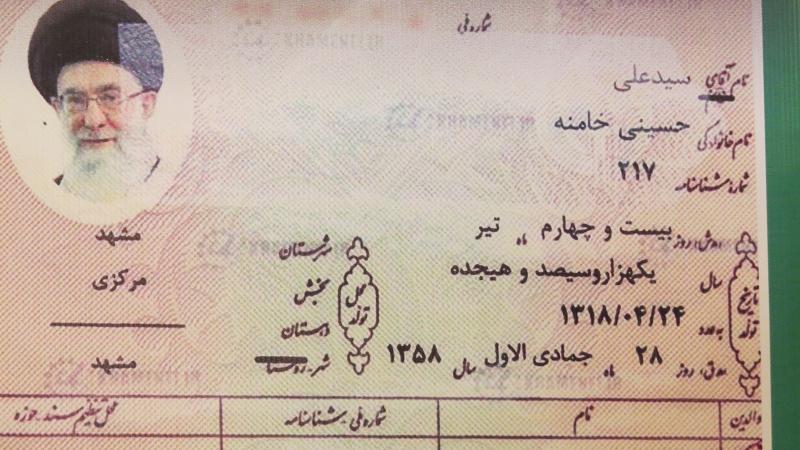 شماره ملی
نام آقای سیدعلی
نام خانوادگی حسینی خامنه
شماره شناسنامه ۲۱۷
تاریخ تولد
روز بیست و چهارم ماه تیر
سال یکهزاروسیصد و هیجده
به عدد ۱۳۱۸/۰۴/۲۴
روز ۲۸ ماه جمادی الاول سال ۱۳۵۸
محل تولد
شهرستان مشهد
بخش مرکزی
دهستان
شهر-روستا مشهد
والدین نام شماره ملی-شناسنامه محل تنظیم سند-حوزه
KHAMENEI.IR